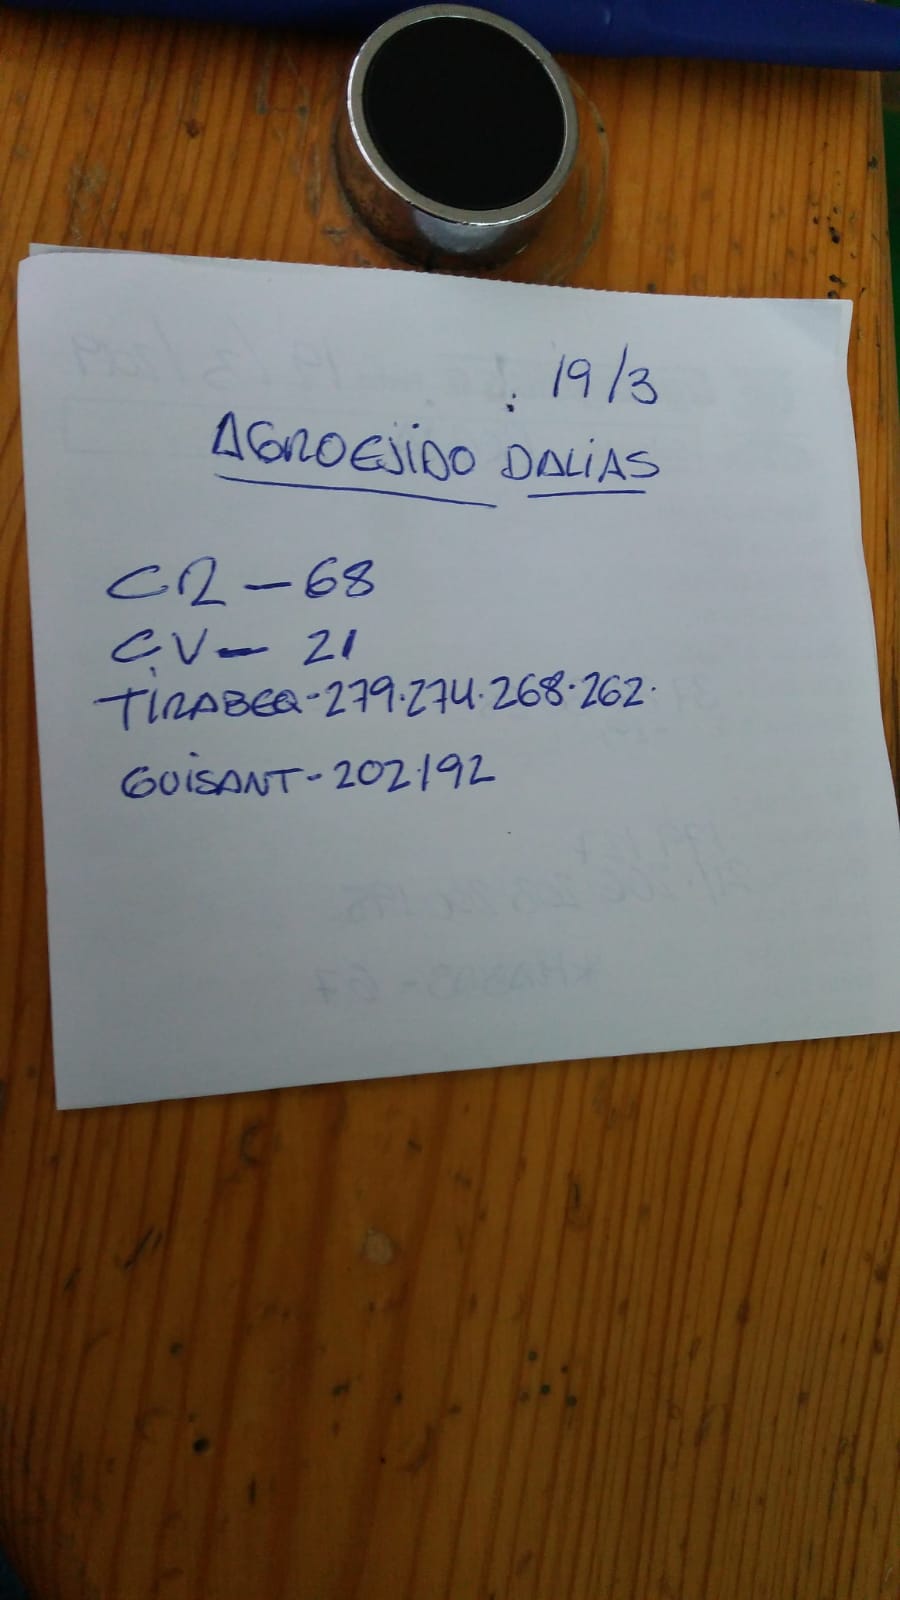 : 19/3
AGROEJIDO DALIAS
CR - 68
CV - 21
TIRABEQ - 279.274.268.262.
GUISANT - 202.192